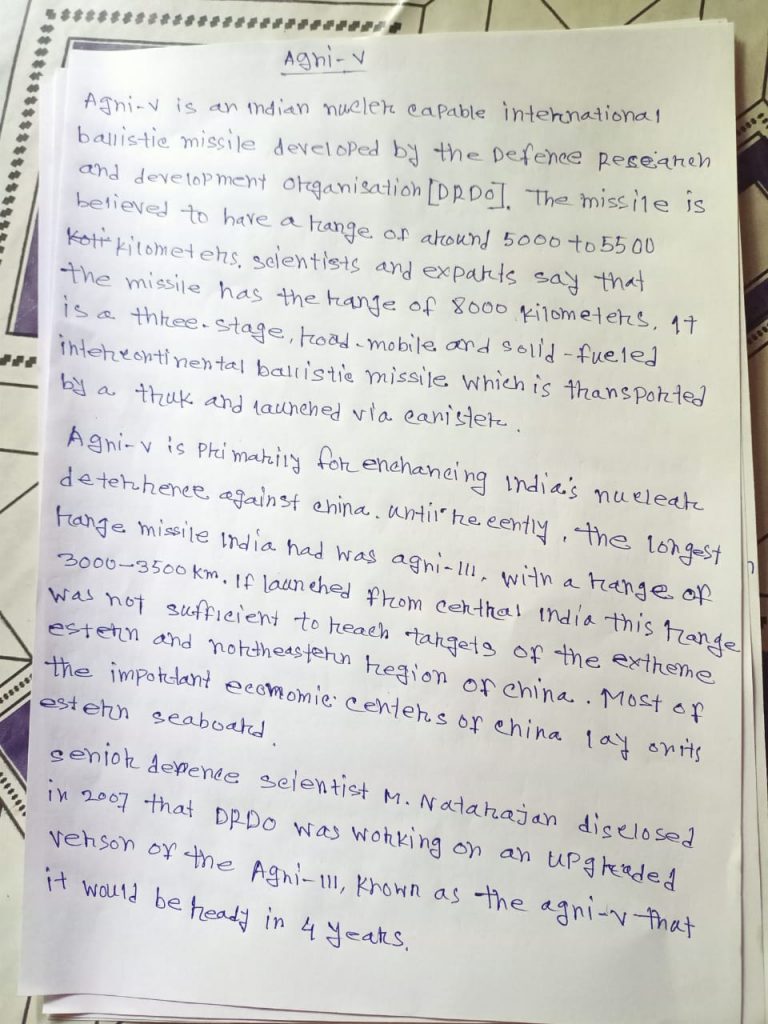 Agni-V
Agni-V is an indian nucler capable international
ballistic missile developed by the Defence Reseanch
and development organisation [DRDO]. The missile is
believed to have a range of around 5000 to 5500
kilometers. scientists and exparts say that
the missile has the range of 8000 kilometers. It
is a three-stage, road-mobile and solid-fueled
intercontinental ballistic missile which is transported
by a truk and launched via canister.
Agni-V is primarily for enchancing india's nuclear
deterrence against china. until recently, the longest
range missile India had was agni-III, with a range of
3000-3500 km. If launched from central india this range
was not sufficient to reach targets of the extreme
estern and northeastern region of china. Most of
the important economic centers of china lay on its
estern seaboard.
senior defence scientist M. Natarajan disclosed
in 2007 that DRDO was working on an upgraded
verson of the Agni-III, known as the agni-v that
it would be ready in 4 years.